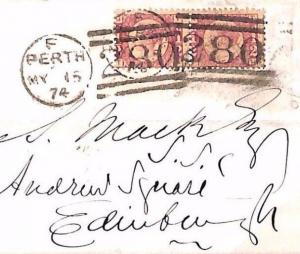 F
PERTH
MY 15
74
S. Mack Esq
S.S.C.
Andrew Square
Edinburgh